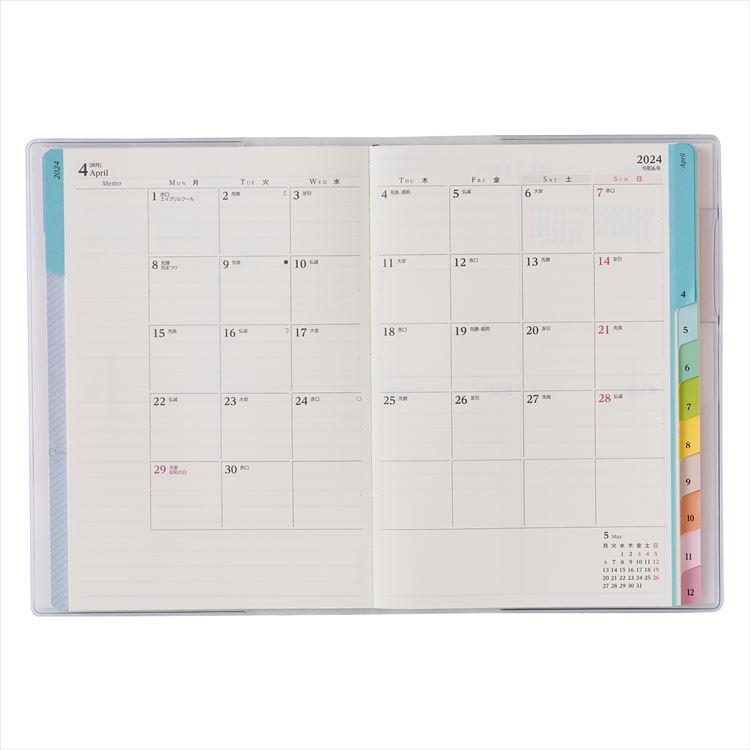 2024
4 [卯月]
April
2024
令和6年
April
Memo
MON 月
TUE 火
WED 水
THU 木
FRI 金
SAT 土
SUN 日
1 赤口
エイプリルフール
2 先勝
3 友引
4 先負 清明
5 仏滅
6 大安
7 赤口
8 先勝
花まつり
9 先負
10 仏滅
11 大安
12 赤口
13 先勝
14 友引
15 先負
16 仏滅
17 大安
18 赤口
19 先勝・穀雨
20 友引
21 先負
22 仏滅
23 大安
24 赤口
25 先勝
26 友引
27 先負
28 仏滅
29 大安
昭和の日
30 赤口
5 May
月 火 水 木 金 土 日
1 2 3 4 5
6 7 8 9 10 11 12
13 14 15 16 17 18 19
20 21 22 23 24 25 26
27 28 29 30 31
4
5
6
7
8
9
10
11
12